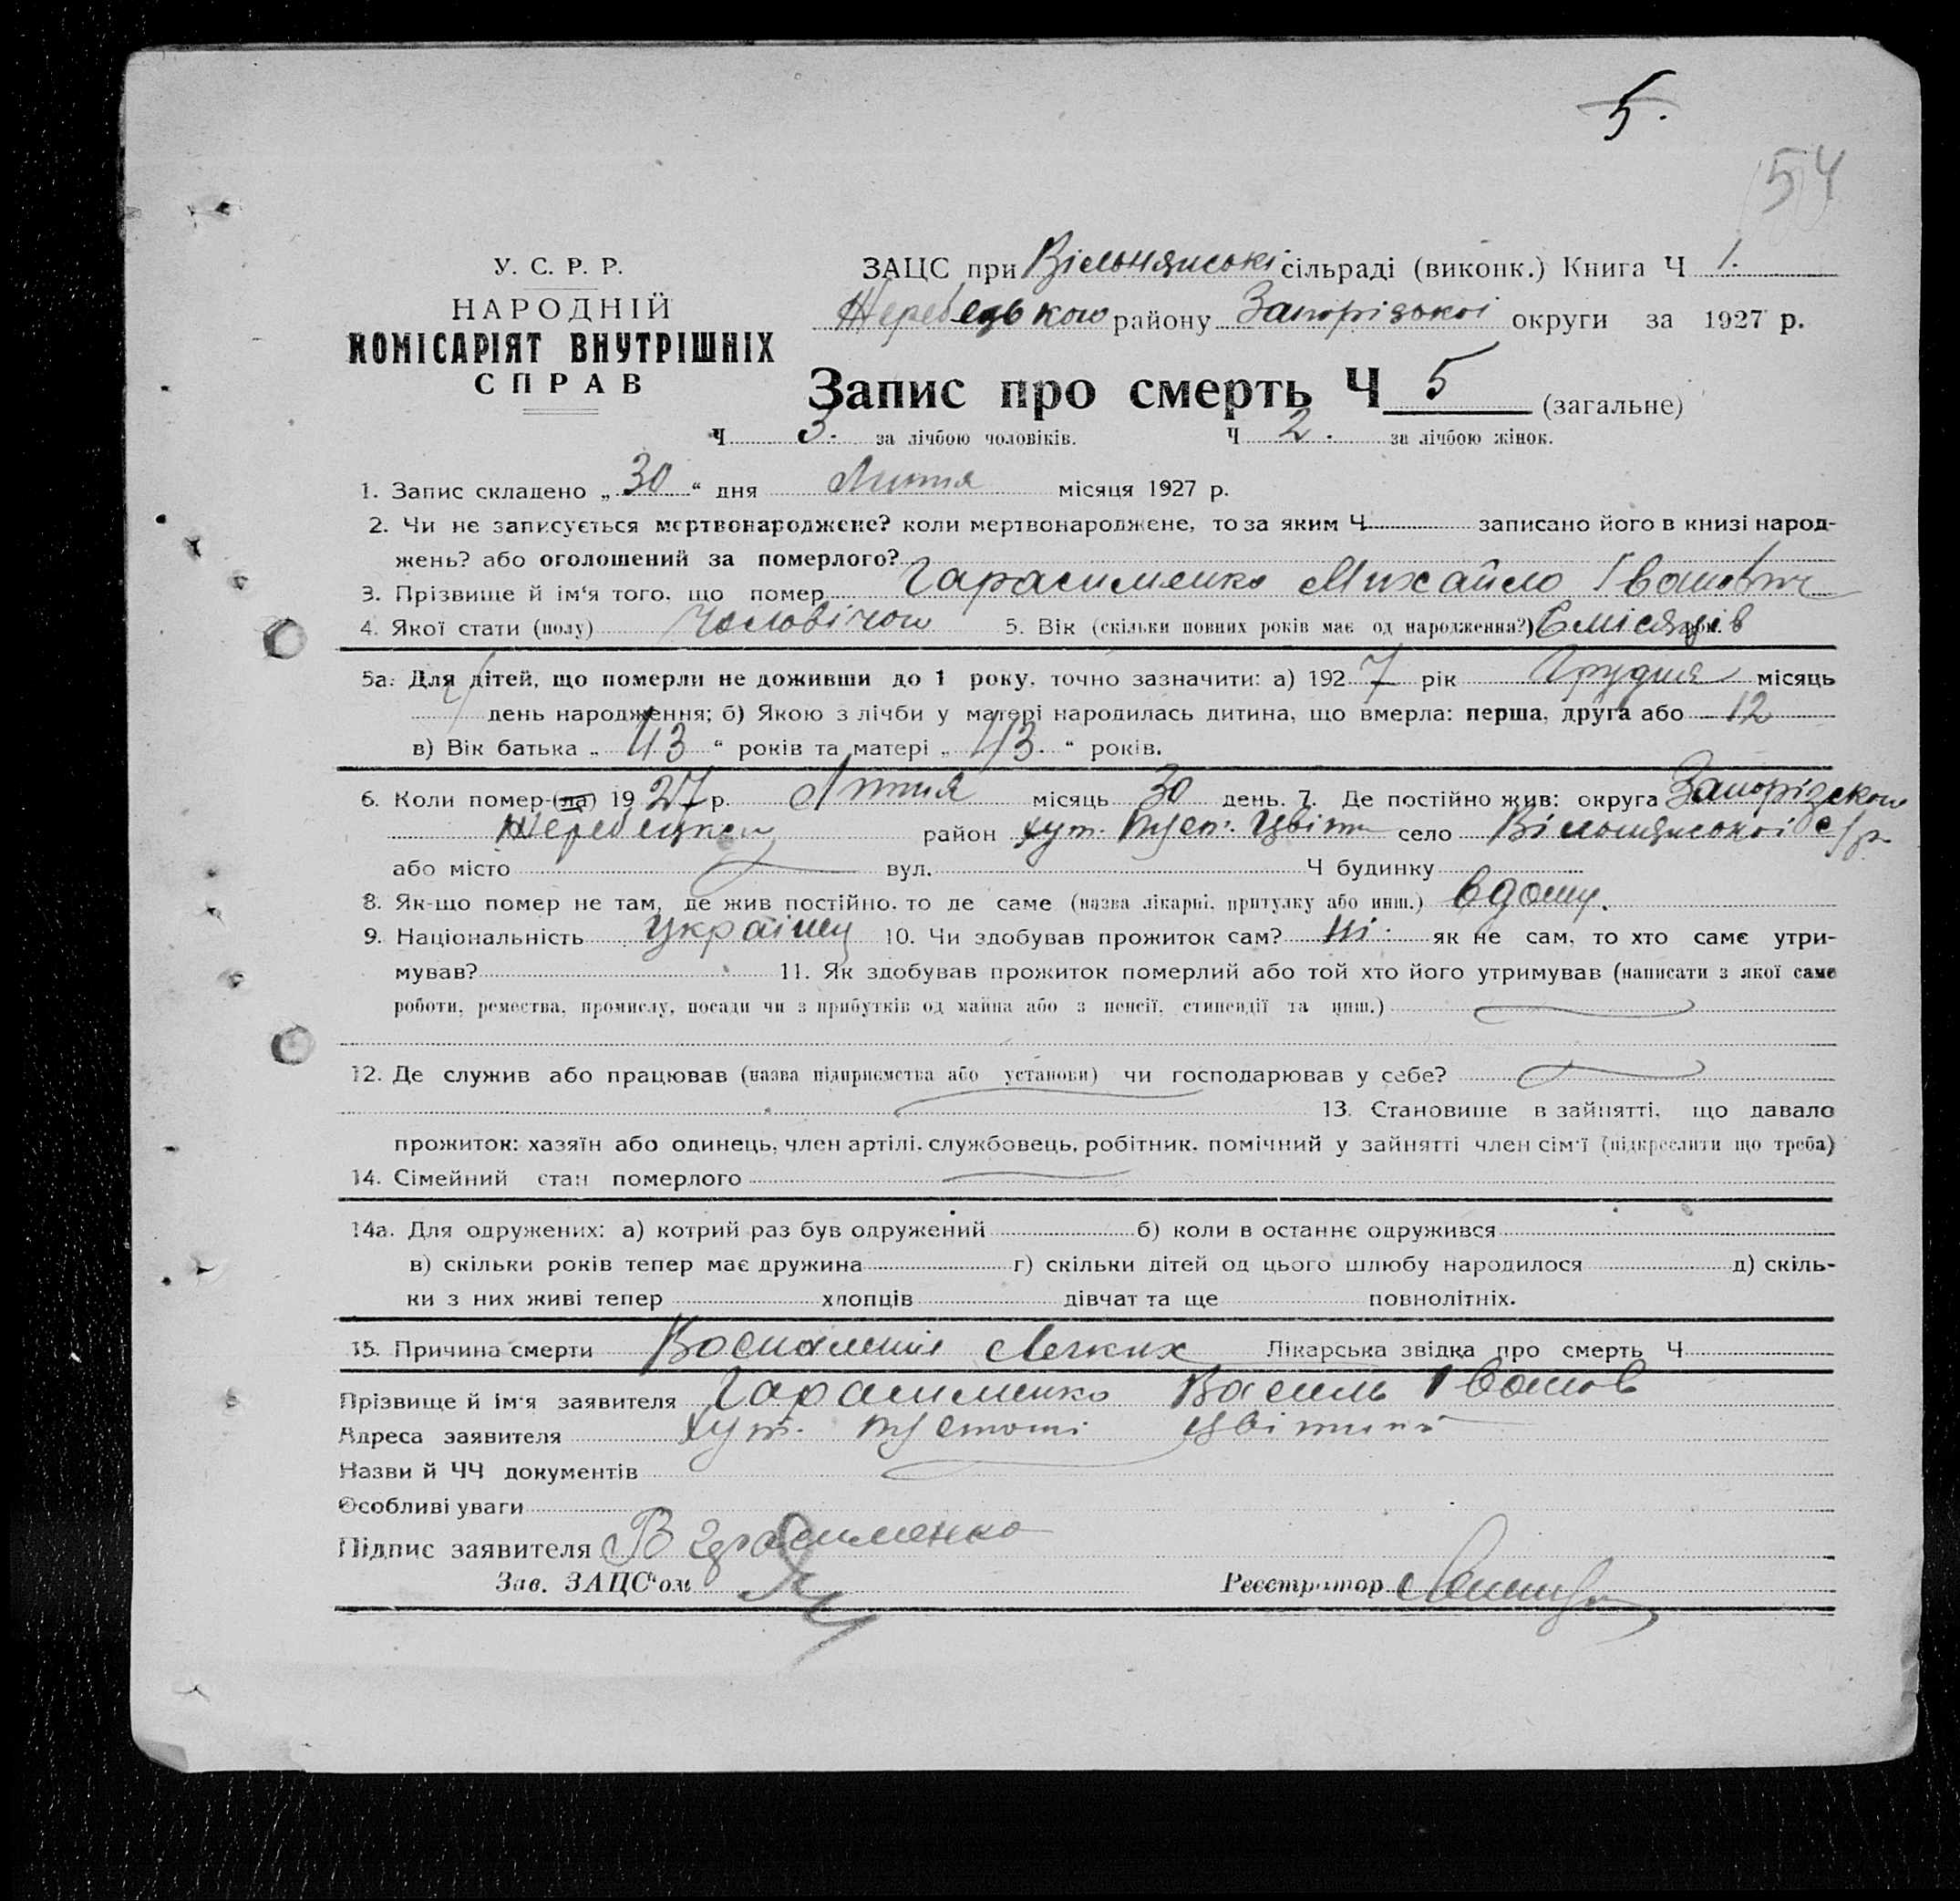 5.
54
У. С. Р. Р.
НАРОДНІЙ
КОМІСАРІЯТ ВНУТРІШНІХ
СПРАВ
ЗАЦС при Вільнянські сільраді (виконк.) Книга Ч 1.
Жеребецького району Запорізької округи за 1927 р.
Запис про смерть Ч 5 (загальне)
Ч 3. за лічбою чоловіків. Ч 2. за лічбою жінок.
1. Запис складено „30“ дня місяця 1927 р.
2. Чи не записується мертвонароджене? коли мертвонароджене, то за яким Ч записано його в книзі народ-
жень? або оголошений за померлого?
3. Прізвище й ім‘я того, що помер Гарасименко Михайло Іванович
4. Якої стати (полу) Чоловічого 5. Вік (скільки повних років має од народження?) 6 місяців
5а. Для дітей, що померли не доживши до 1 року, точно зазначити: а) 1927 рік Грудня місяць
день народження; б) Якою з лічби у матері народилась дитина, що вмерла: перша, друга або 12
в) Вік батька „43“ років та матері „43.“ років.
6. Коли помер-(ла) 1927 р. місяць 30 день. 7. Де постійно жив: округа
район хут. Цвіт село Вільнянської с/р
або місто вул. Ч будинку
8. Як-що помер не там, де жив постійно, то де саме (назва лікарні, притулку або инш.) вдому.
9. Національність 10. Чи здобував прожиток сам? ні. як не сам, то хто саме утри-
мував? 11. Як здобував прожиток померлий або той хто його утримував (написати з якої саме
роботи, ремества, промислу, посади чи з прибутків од майна або з пенсії, стипендії та инш.)
12. Де служив або працював (назва підприємства або установи) чи господарював у себе?
13. Становище в зайнятті, що давало
прожиток: хазяїн або одинець, член артілі, службовець, робітник, помічний у зайнятті член сім‘ї (підкреслити що треба)
14. Сімейний стан померлого
14а. Для одружених: а) котрий раз був одружений б) коли в останнє одружився
в) скільки років тепер має дружина г) скільки дітей од цього шлюбу народилося д) скіль-
ки з них живі тепер хлопців дівчат та ще повнолітніх.
15. Причина смерти Воспаленія Легких Лікарська звідка про смерть Ч
Прізвище й ім‘я заявителя Гарасименко Василь Іванов
Адреса заявителя хут.
Назви й ЧЧ документів
Особливі уваги
Підпис заявителя В Гарасименко
Зав. ЗАЦС‘ом Реєстратор